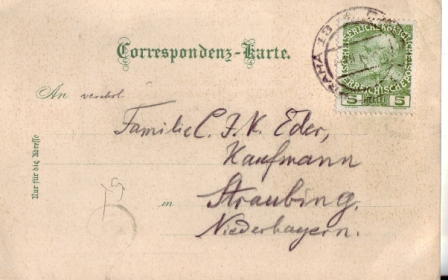 Correspondenz-Karte.
An verehrl.
Familie C. J. K. Eder,
Kaufmann
in Straubing.
Niederbayern.
Nur für die Adresse
PRAHA
5 HELLER 5